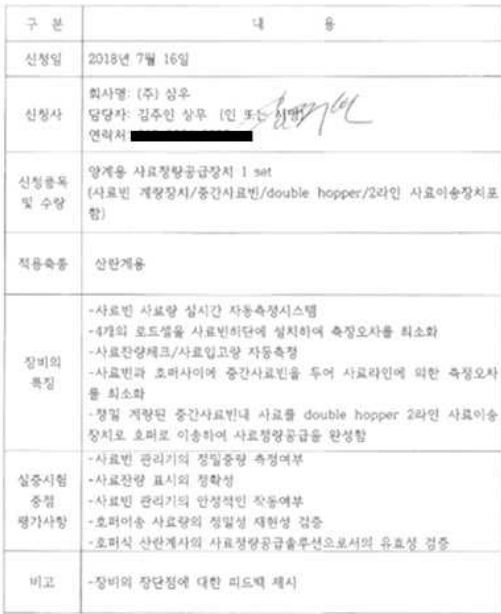 구 분
내 용
신청일
2018년 7월 16일
신청사
회사명: (주) 삼우
담당자: 김주인 상무 (인 또는 서명)
연락처:
신청품목
및 수량
양계용 사료정량공급장치 1 set
(사료빈 계량장치/중간사료빈/double hopper/2라인 사료이송장치포
함)
적용축종
산란계용
장비의
특징
-사료빈 사료량 실시간 자동측정시스템
-4개의 로드셀을 사료빈하단에 설치하여 측정오차를 최소화
-사료잔량체크/사료입고량 자동측정
-사료빈과 호퍼사이에 중간사료빈을 두어 사료라인에 의한 측정오차
를 최소화
-정밀 계량된 중간사료빈내 사료를 double hopper 2라인 사료이송
장치로 호퍼로 이송하여 사료정량공급을 완성함
실증시험
중점
평가사항
-사료빈 관리기의 정밀중량 측정여부
-사료잔량 표시의 정확성
-사료빈 관리기의 안정적인 작동여부
-호퍼이송 사료량의 정밀성 재현성 검증
-호퍼식 산란계사의 사료정량공급솔루션으로서의 유효성 검증
비고
-장비의 장단점에 대한 피드백 제시